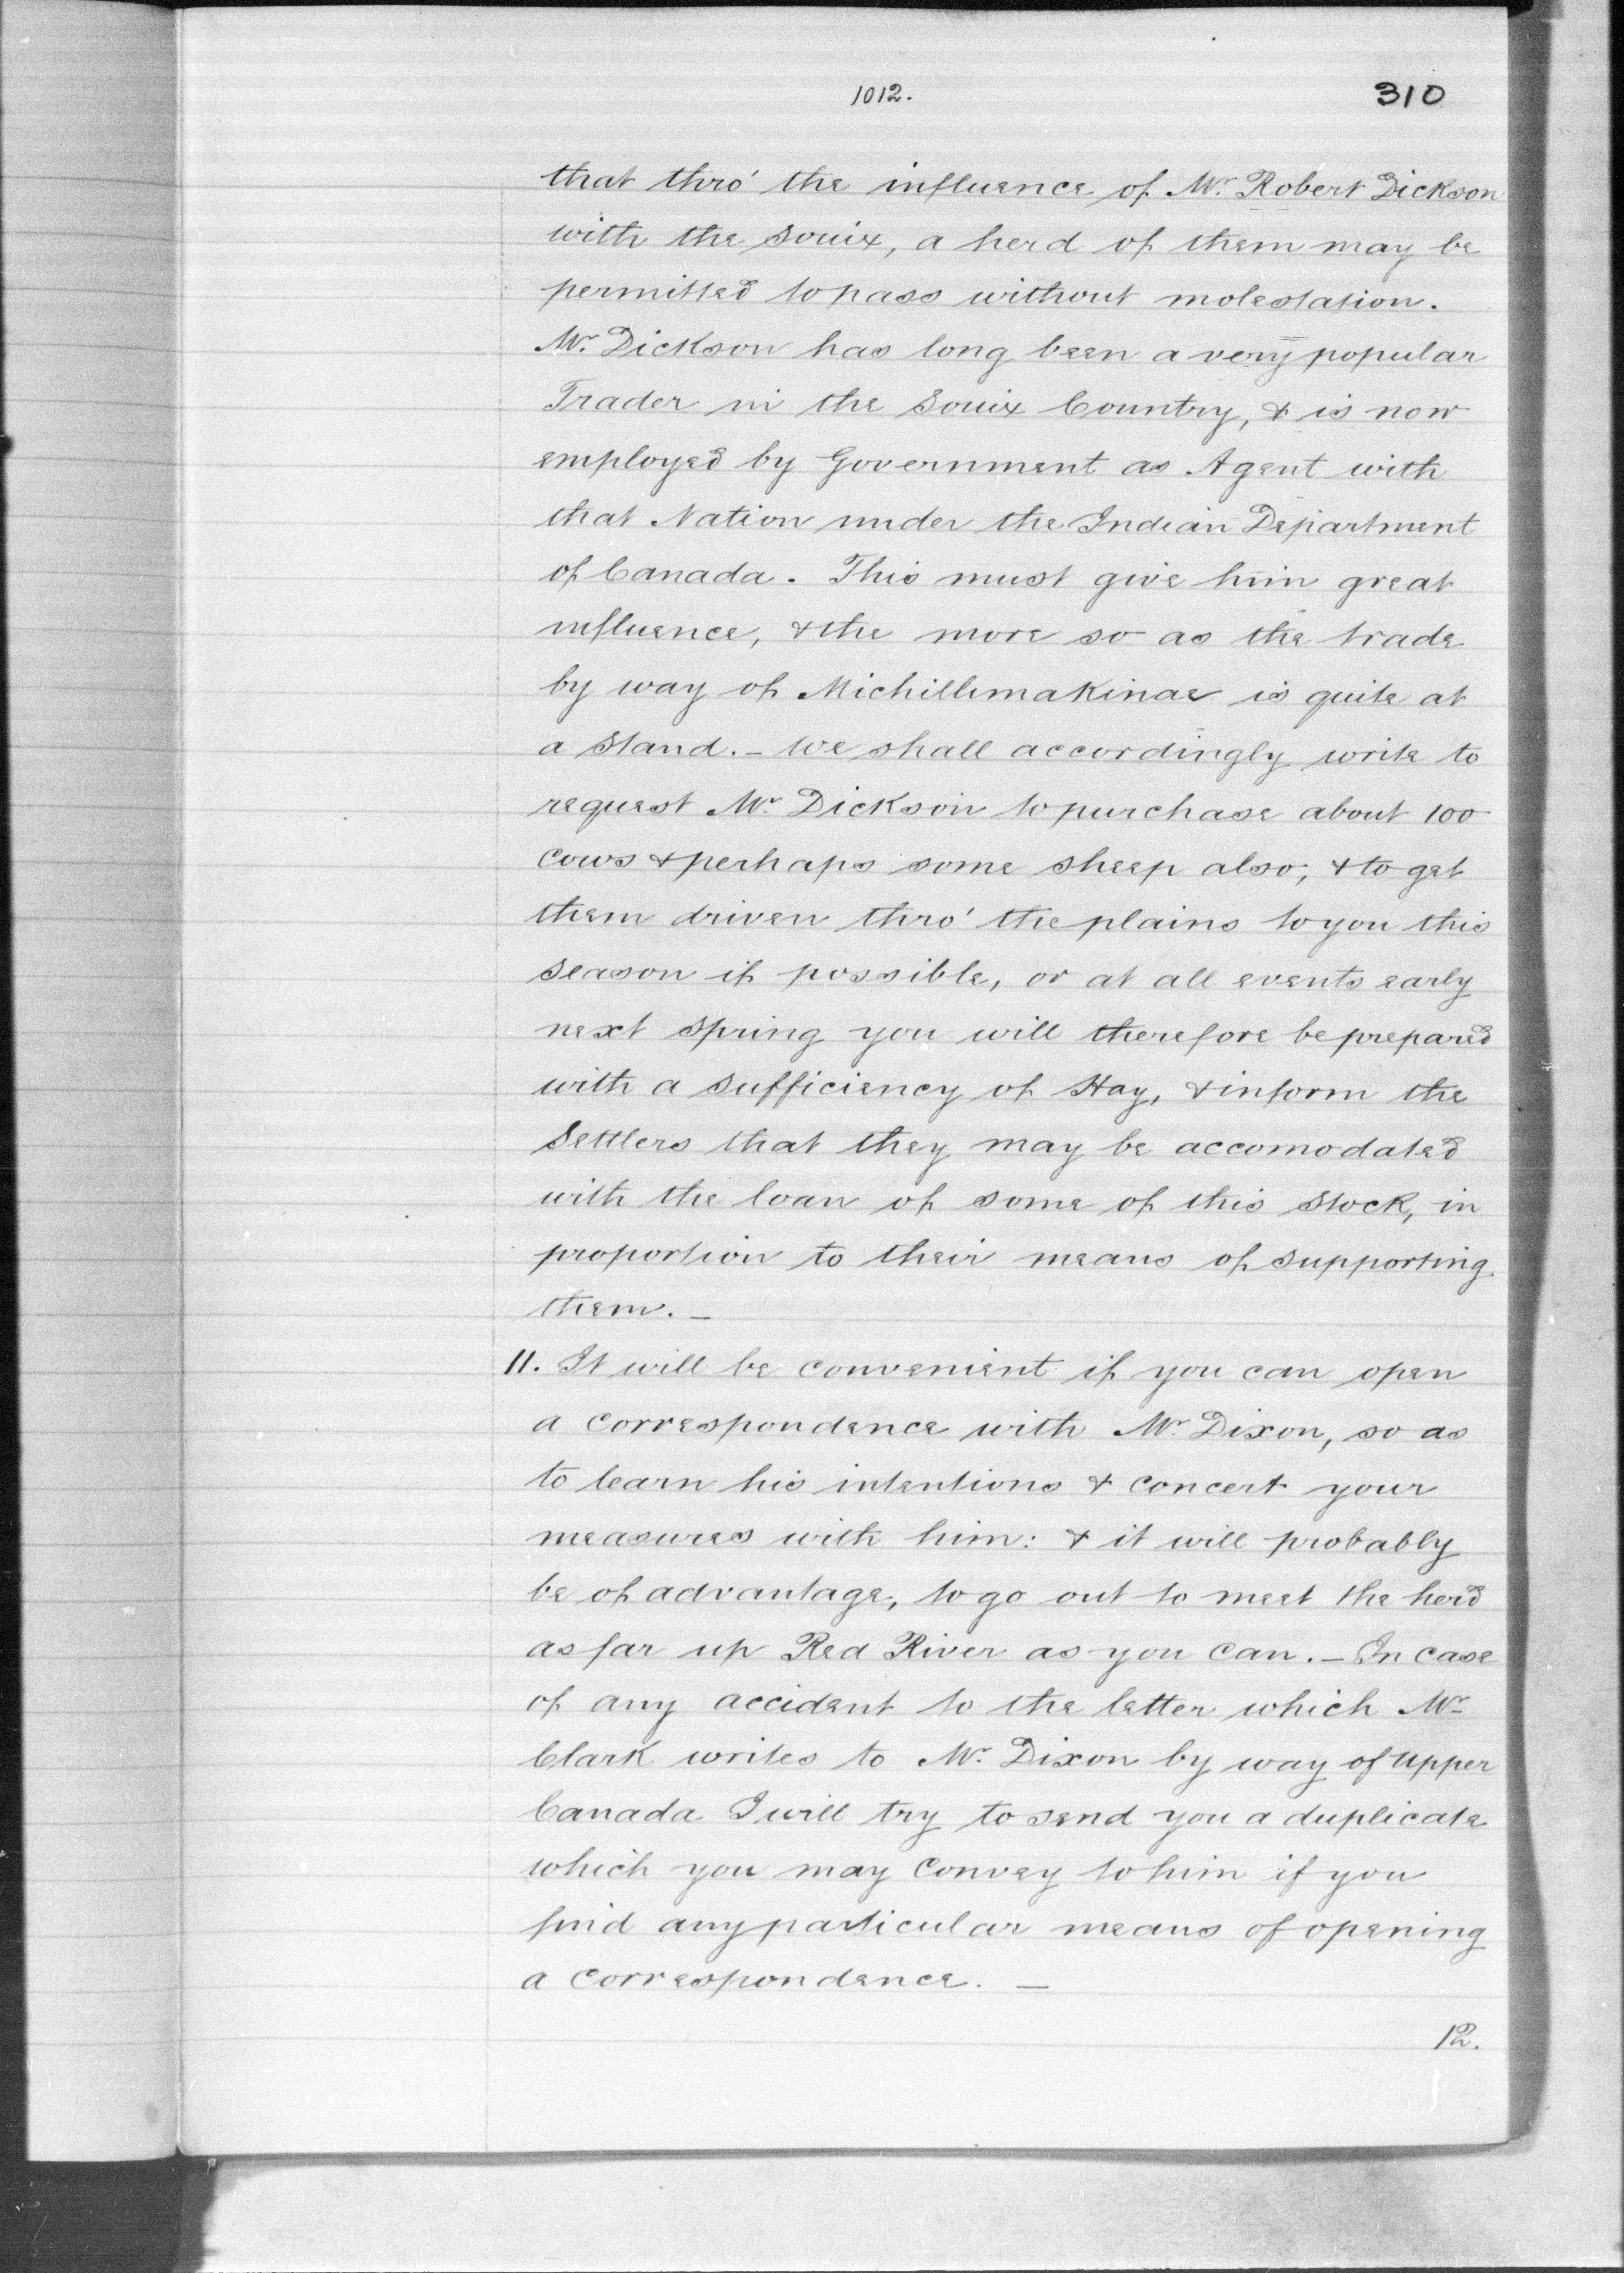 1012.
310
that thro' the influence of Mr. Robert Dickson
with the Souix, a herd of them may be
permitted to pass without molestation.
Mr. Dickson has long been a very popular
Trader in the Souix Country, & is now
employed by Government as Agent with
that Nation under the Indian Department
of Canada. This must give him great
influence, & the more so as the trade
by way of Michillimakinac is quite at
a stand. – We shall accordingly write to
request Mr. Dickson to purchase about 100
cows & perhaps some sheep also, & to get
them driven thro' the plains to you this
season if possible, or at all events early
next spring you will therefore be prepared
with a sufficiency of Hay, & inform the
Settlers that they may be accomodated
with the loan of some of this stock, in
proportion to their means of supporting
them. –
11. It will be convenient if you can open
a correspondence with Mr. Dixon, so as
to learn his intentions & concert your
measures with him: & it will probably
be of advantage, to go out to meet the herd
as far up Red River as you can. – In case
of any accident to the letter which Mr.
Clark writes to Mr. Dixon by way of Upper
Canada I will try to send you a duplicate
which you may convey to him if you
find any particular means of opening
a correspondence. –
12.